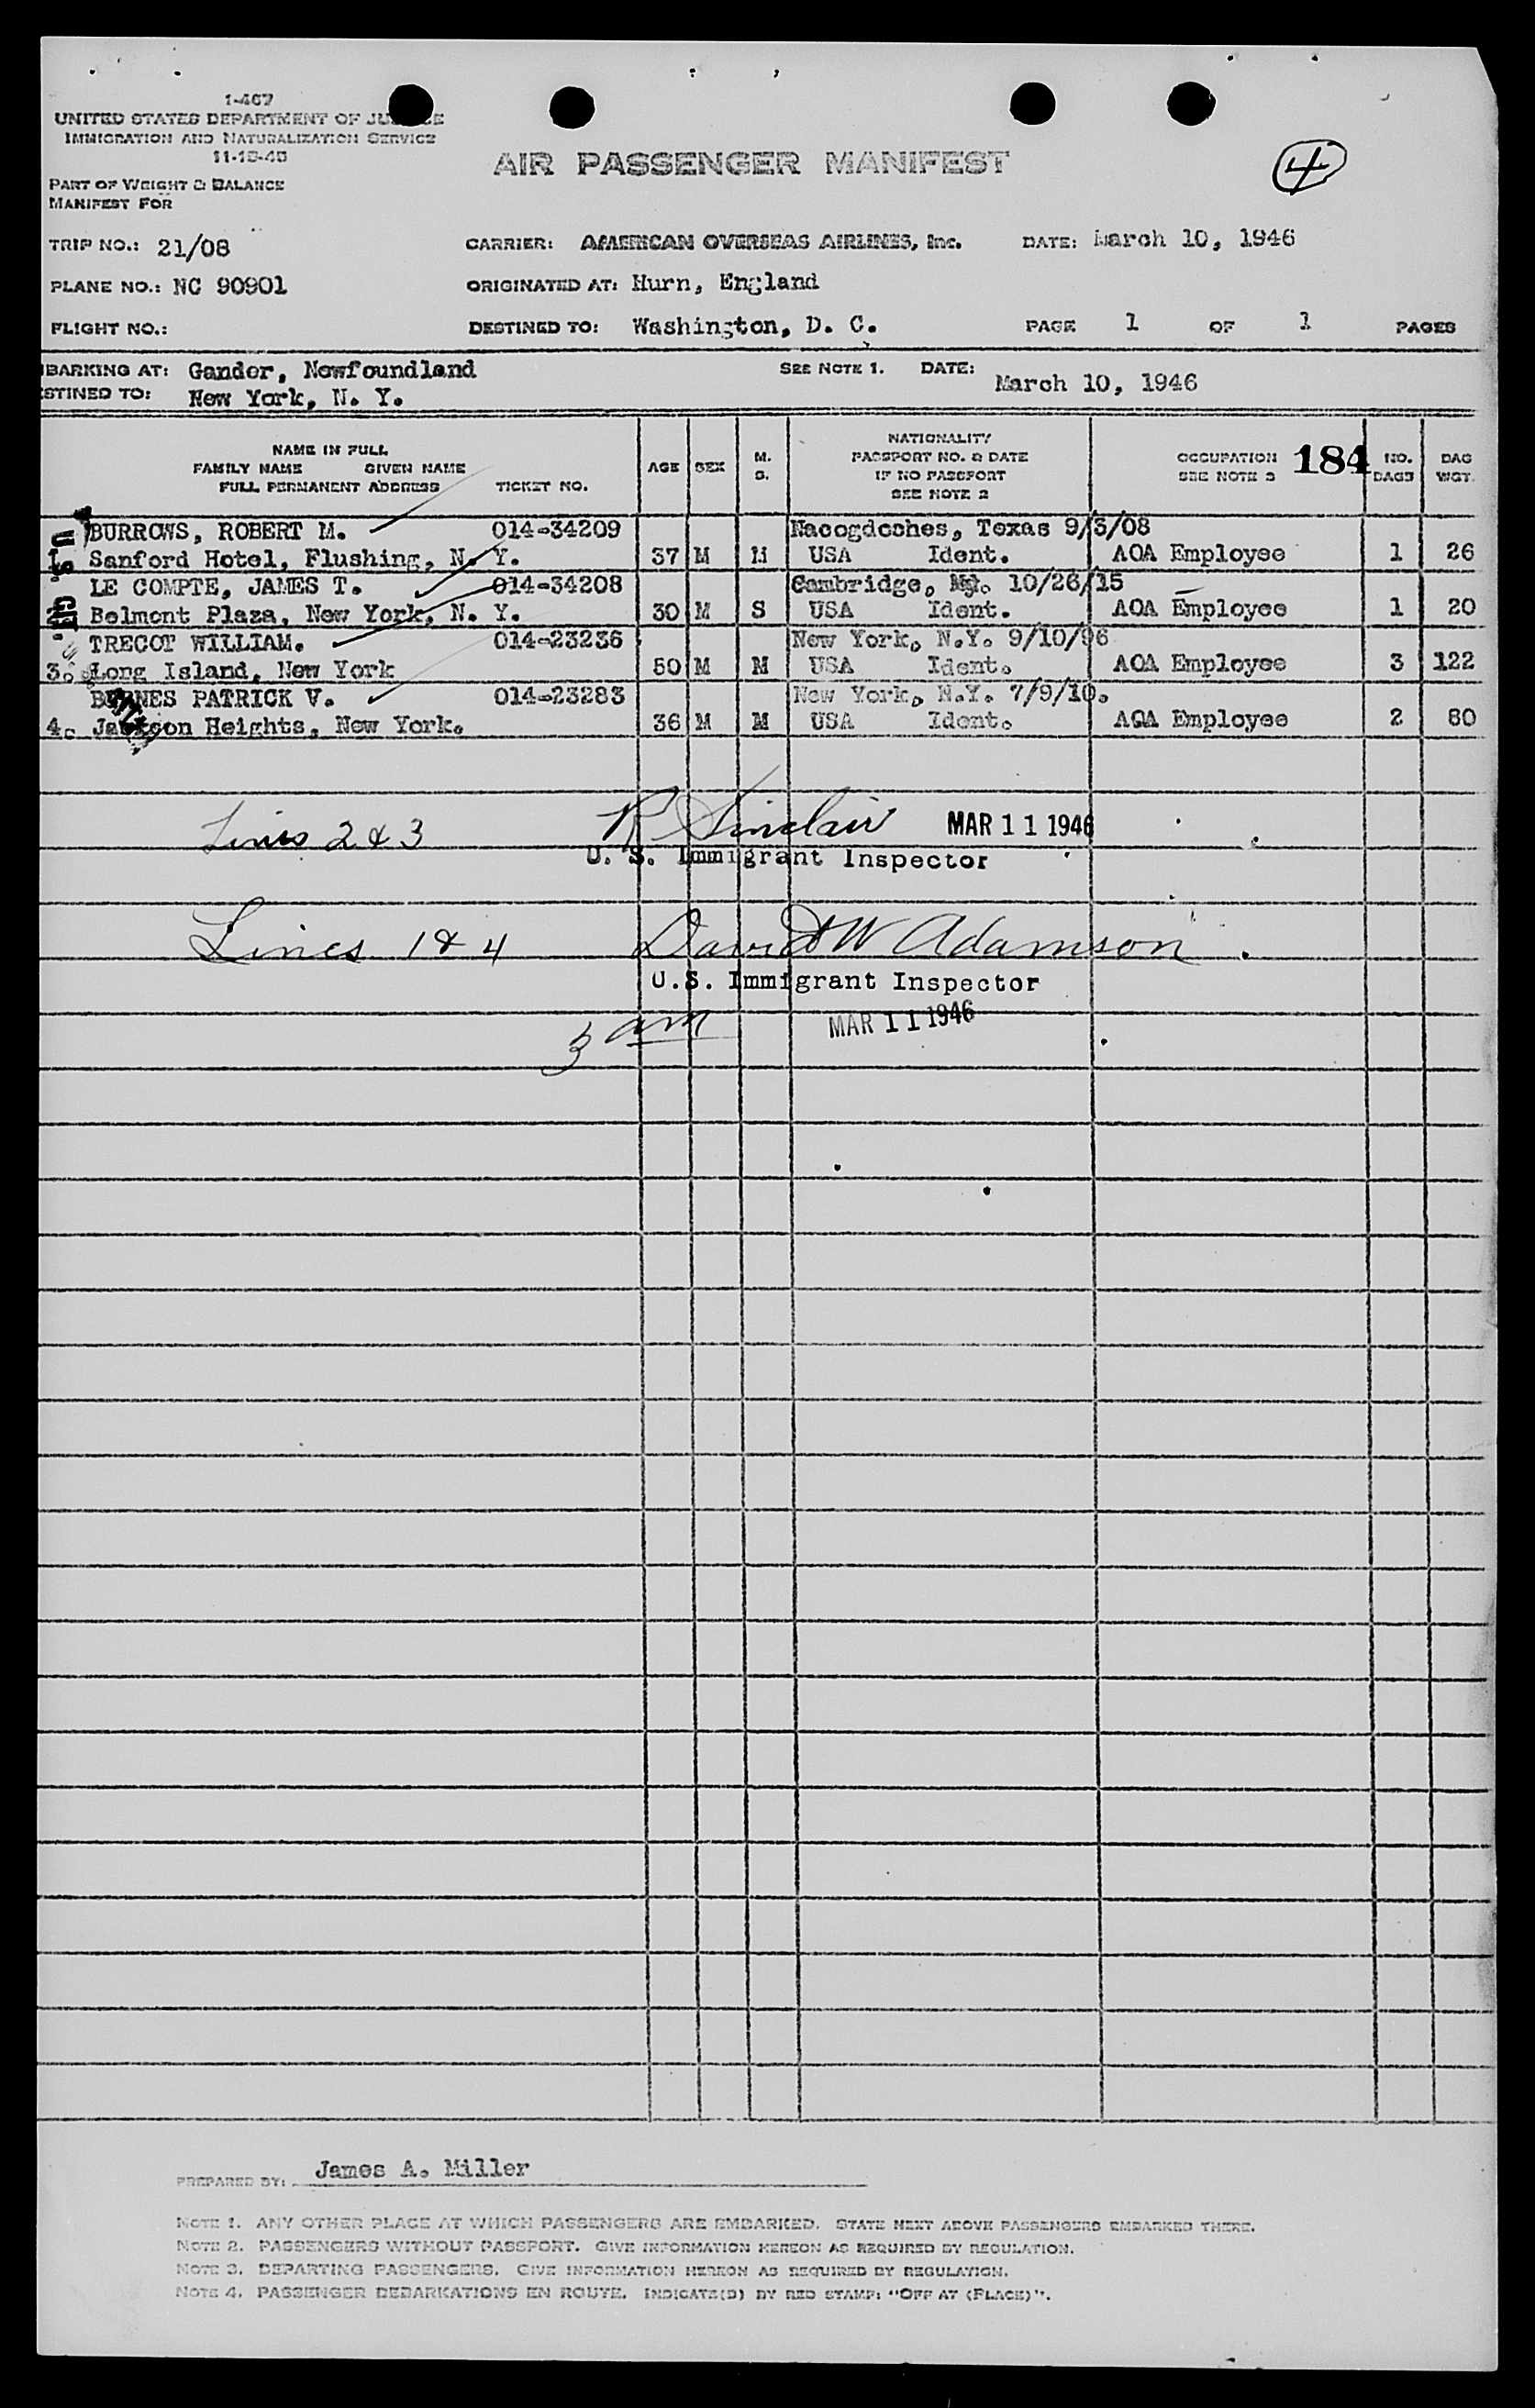 1-467
UNITED STATES DEPARTMENT OF
IMMIGRATION AND NATURALIZATION SERVICE
PART OF WEIGHT & BALANCE
MANIFEST FOR
AIR PASSENGER MANIFEST
4
TRIP NO.: 21/08 CARRIER: AMERICAN OVERSEAS AIRLINES, Inc. DATE: March 10, 1946
PLANE NO.: NC 90901 ORIGINATED AT: Hurn, England
FLIGHT NO.: DESTINED TO: Washington, D. C. PAGE 1 OF 1 PAGES
BARKING AT: Gander, Newfoundland SEE NOTE 1. DATE: March 10, 1946
STINED TO: New York, N. Y.
NAME IN FULL
FAMILY NAME GIVEN NAME
FULL PERMANENT ADDRESS TICKET NO.
AGE SEX M. S.
NATIONALITY
PASSPORT NO. & DATE
IF NO PASSPORT
SEE NOTE 2
OCCUPATION
SEE NOTE 3
184
NO. BAGS
BAG WGT.
BURROWS, ROBERT M. 014-34209 Nacogdoches, Texas 9/3/08
Sanford Hotel, Flushing, N. Y. 37 M M USA Ident. AOA Employee 1 26
LE COMPTE, JAMES T. 014-34208 Cambridge, Md. 10/26/15
Belmont Plaza, New York, N. Y. 30 M S USA Ident. AOA Employee 1 20
TRECOT WILLIAM. 014-23236 New York, N.Y. 9/10/96
3. Long Island, New York 50 M M USA Ident. AOA Employee 3 122
PATRICK V. 014-23283 New York, N.Y. 7/9/10.
4. Jackson Heights, New York. 36 M M USA Ident. AOA Employee 2 80
Lines 2 & 3 R Sinclair MAR 11 1946
U. S. Immigrant Inspector
Lines 1 & 4 David W Adamson
U.S. Immigrant Inspector
3 am MAR 11 1946
PREPARED BY: James A. Miller
NOTE 1. ANY OTHER PLACE AT WHICH PASSENGERS ARE EMBARKED. STATE NEXT ABOVE PASSENGERS EMBARKED THERE.
NOTE 2. PASSENGERS WITHOUT PASSPORT. GIVE INFORMATION HEREON AS REQUIRED BY REGULATION.
NOTE 3. DEPARTING PASSENGERS. GIVE INFORMATION HEREON AS REQUIRED BY REGULATION.
NOTE 4. PASSENGER DEBARKATIONS EN ROUTE. INDICATE(D) BY RED STAMP: "OFF AT (PLACE)".